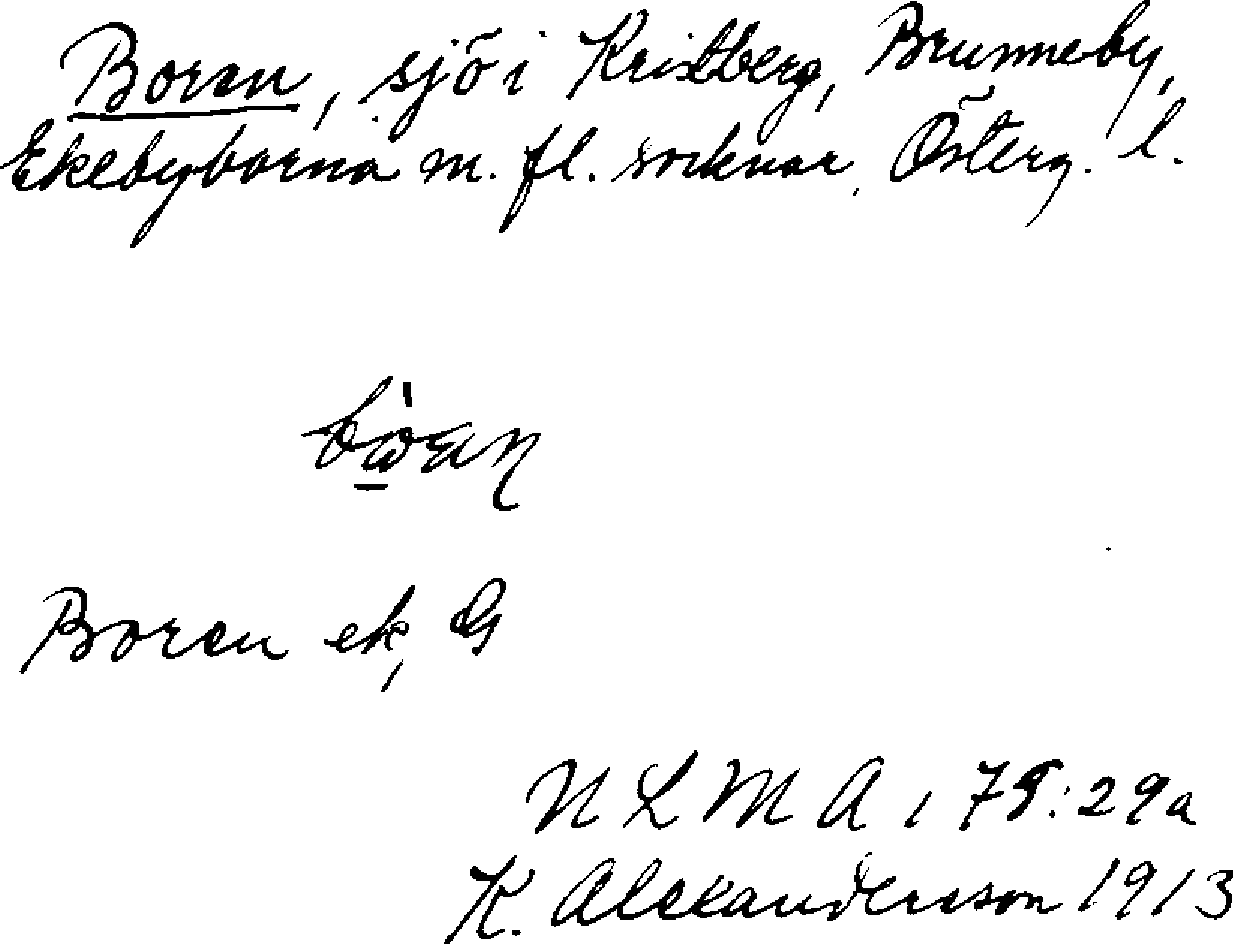 Boren, sjö i Kristberg, Brunneby,
Ekebyborna m. fl. socknar, Österg. l.
Boren ek, G
N L M A, 75:29a
K. Alexandersson 1913